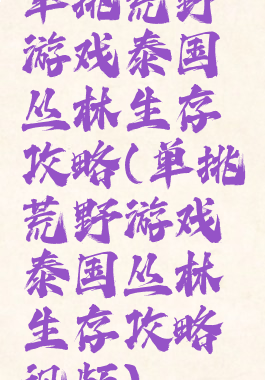 单挑荒野
游戏泰国
丛林生存
攻略(单挑
荒野游戏
泰国丛林
生存攻略
视频)